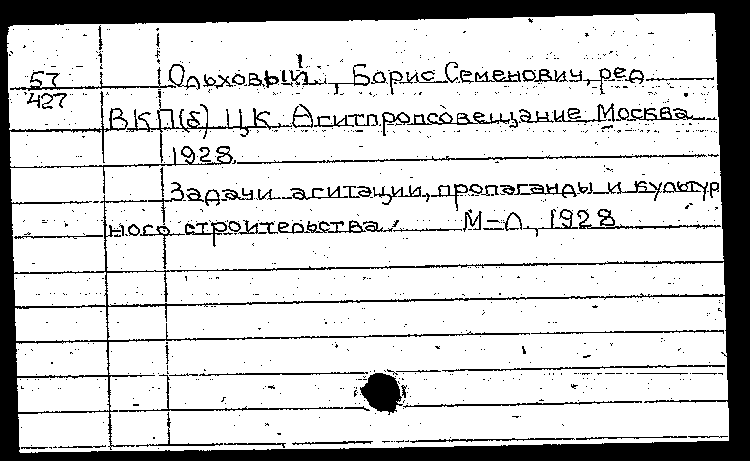 57
427
Ольховый, Борис Семенович, ред
ВКП(б) ЦК. Агитпропсовещание, Москва
1928
Задачи агитации, пропаганды и культур
ного строительства. М-Л, 1928